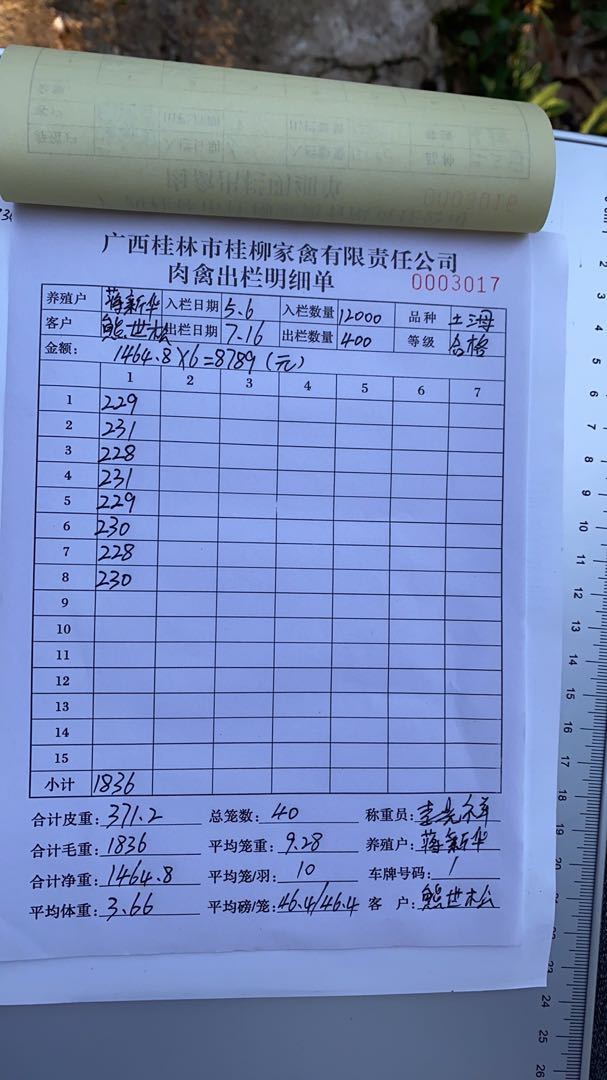 0003016
广西桂林市桂柳家禽有限责任公司
肉禽出栏明细单 0003017
养殖户 蒋新华 入栏日期 5.6 入栏数量 12000 品种 土海
客户 熊世松 出栏日期 7.16 出栏数量 400 等级 合格
金额: 1464.8×6=8789(元)
1 2 3 4 5 6 7
1 229
2 231
3 228
4 231
5 229
6 230
7 228
8 230
9
10
11
12
13
14
15
小计 1836
合计皮重: 371.2 总笼数: 40 称重员:
合计毛重: 1836 平均笼重: 9.28 养殖户: 蒋新华
合计净重: 1464.8 平均笼/羽: 10 车牌号码: 1
平均体重: 3.66 平均磅/笼: 46.4/46.4 客 户: 熊世松